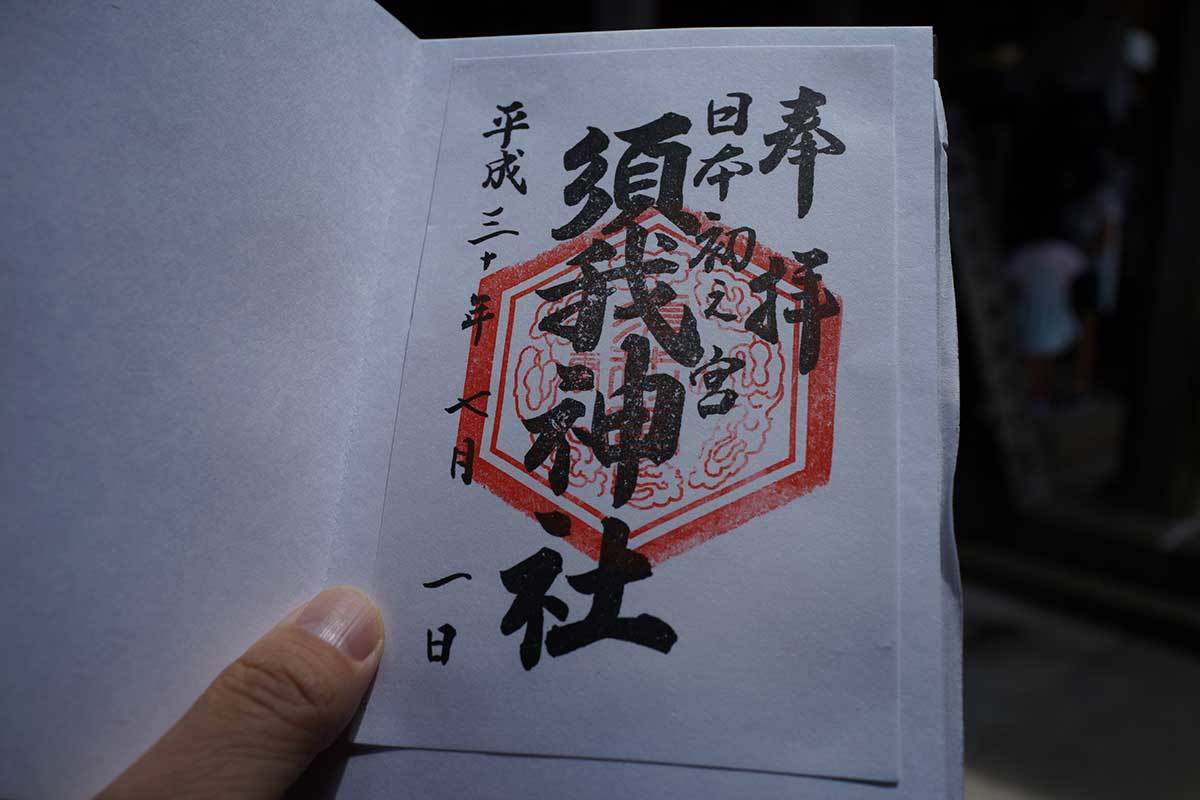 奉拝
日本初之宮
須我神社
平成三十年七月一日